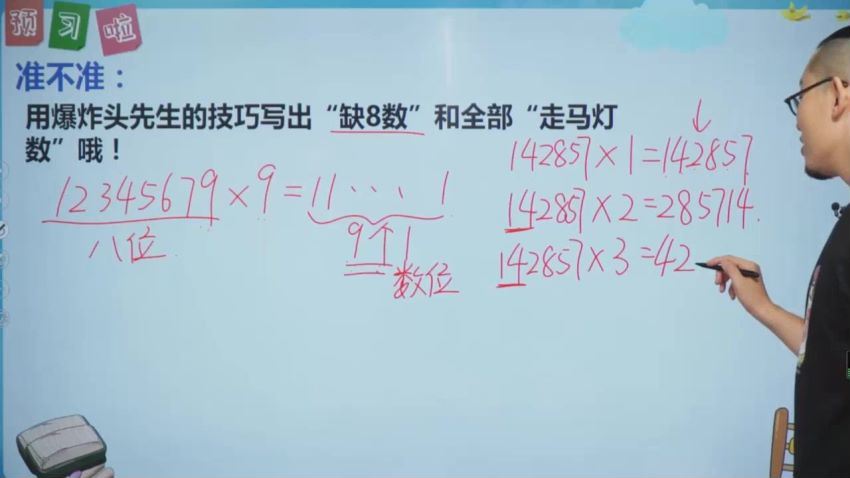 预习啦
准不准：
用爆炸头先生的技巧写出“缺8数”和全部“走马灯
数”哦！
12345679×9=11···1
八位
9个1
数位
142857×1=142857
142857×2=285714.
142857×3=42